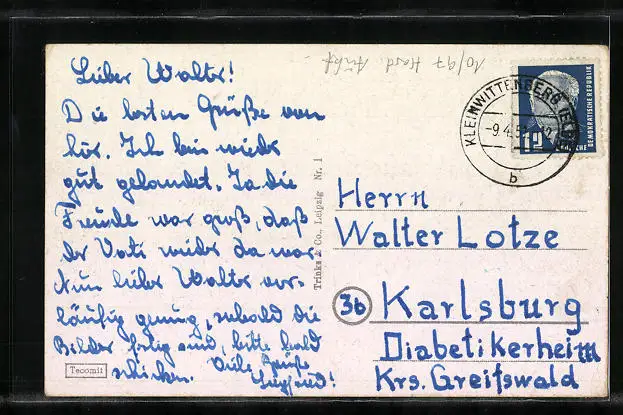 10/97 Hard.
Lieber Walter!
Die besten Grüße von
hier. Ich bin wieder
gut gelandet. Ja die
Freude war groß, daß
der Vati wieder da war
Nun lieber Walter vor-
läufig genug, sobald die
Bilder fertig sind, bitte bald
schicken. Viele Grüße
Siegfried!
Tecomit
Trinks & Co., Leipzig Nr. 1
KLEINWITTENBERG (ELBE)
-9.4.5
b
12
DEUTSCHE DEMOKRATISCHE REPUBLIK
Herrn
Walter Lotze
3b Karlsburg
Diabetikerheim
Krs. Greifswald